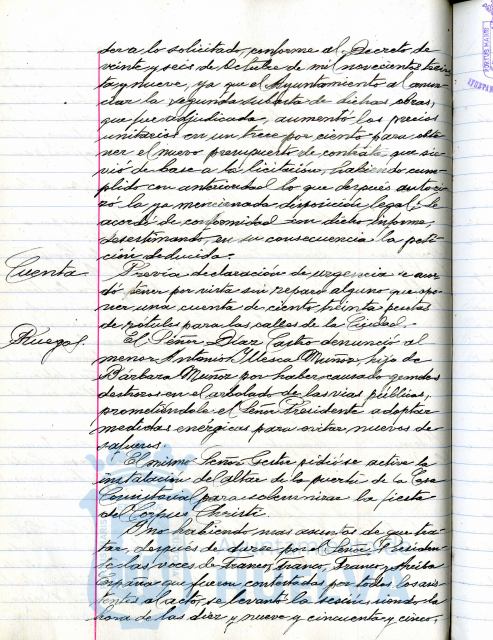 dera lo solicitado, conforme al Decreto de
veinte y seis de Octubre de mil novecientos trein
ta y nueve, ya que el Ayuntamiento al anun
ciar la segunda subasta de dichas obras,
que fue adjudicada, aumentó los precios
unitarios en un trece por ciento para obte
ner el nuevo presupuesto de contrata, que sir
vió de base a la licitación, habiendo cum
plido con anterioridad lo que después autori
zó la ya mencionada disposición legal; se
acordó de conformidad con dicho informe,
desestimando, en su consecuencia la peti
ción deducida.
Cuenta
Previa declaración de urgencia se acor
dó tener por vista sin reparo alguno que opo
ner una cuenta de ciento treinta pesetas
de rótulos para las calles de la Ciudad.
Ruegos
El Señor Diaz Castro denunció al
menor Antonio Illesca Muñoz, hijo de
Bárbara Muñoz por haber causado grandes
destrozos en el arbolado de las vías públicas,
prometiéndole el Señor Presidente adoptar
medidas energicas para evitar nuevos de
safueros.
El mismo Señor Gestor pidió se active la
instalación del altar de la puerta de la Casa
Consistorial para solemnizar la fiesta
del Corpus Christi.
Y no habiendo mas asuntos de que tra
tar, después de darse por el Señor Presiden
te las voces de Franco, Franco, Franco y Arriba
España que fueron contestadas por todos los asis
tentes al acto, se levantó la sesión siendo la
hora de las diez y nueve y cincuenta y cinco,
Ayuntamiento de
HUELVA
PORTUS MARIS